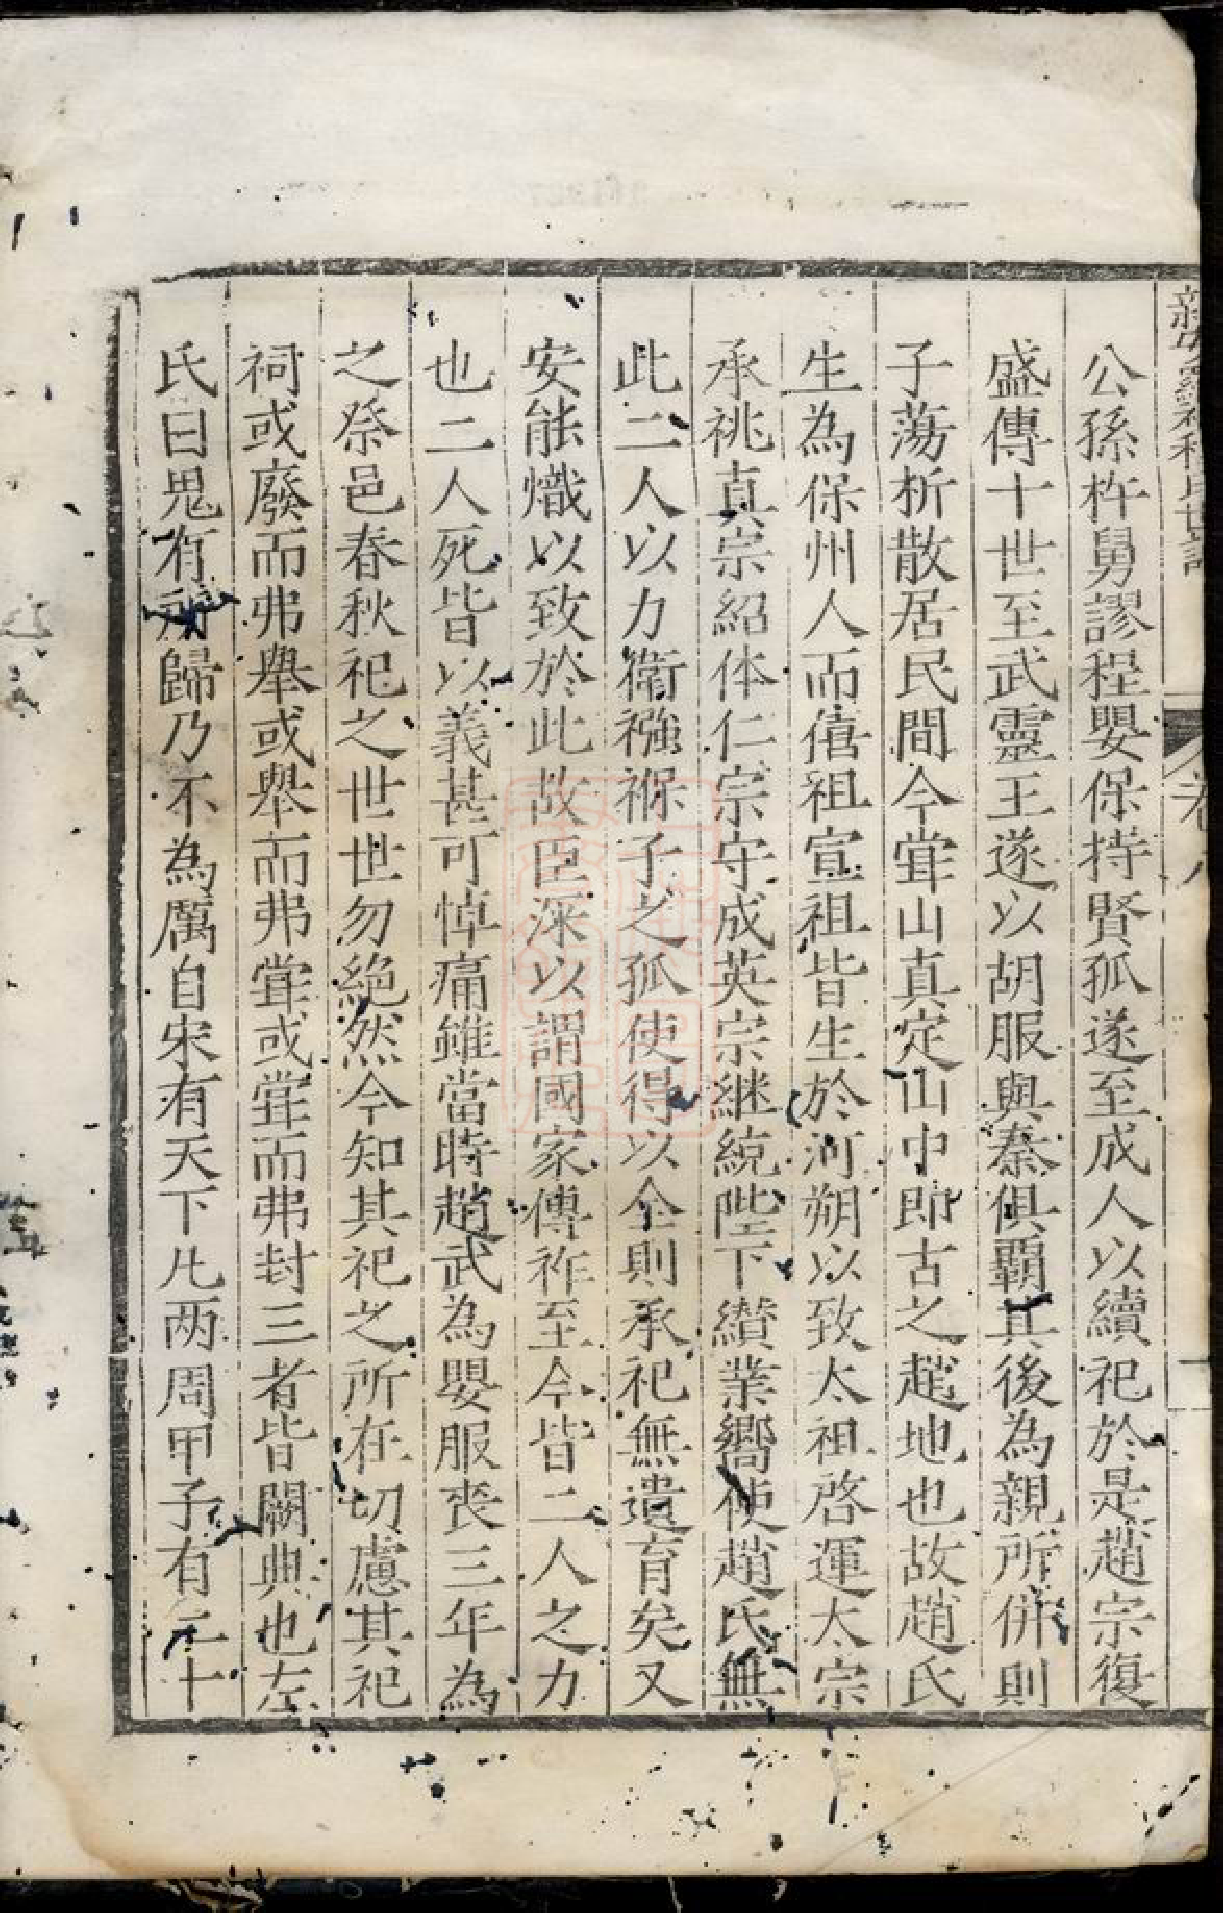 公孫杵舅謬程嬰保持賢孤遂至成人以續祀於是趙宗復
盛傳十世至武靈王遂以胡服與秦俱霸其後為親所併則
子蕩析散居民間今甞山真定山中即古之趙地也故趙氏
生為保州人而僖祖宣祖皆生於河朔以致太祖啓運太宗
承祧真宗紹体仁宗守成英宗継統陛下纉業嚮使趙氏無
此二人以力衛襁褓子之孤使得以全則承祀無遺育矣又
安能熾以致於此故臣深以謂國家傳祚至今皆二人之力
也二人死皆以義甚可悼痛雖當時趙武為嬰服丧三年為
之祭邑春秋祀之世世勿絶然今知其祀之所在切慮其祀
祠或廢而弗舉或舉而弗甞或甞而弗封三者皆闕典也左
氏曰鬼有所歸乃不為厲自宋有天下凡两周甲子有二十
卷八